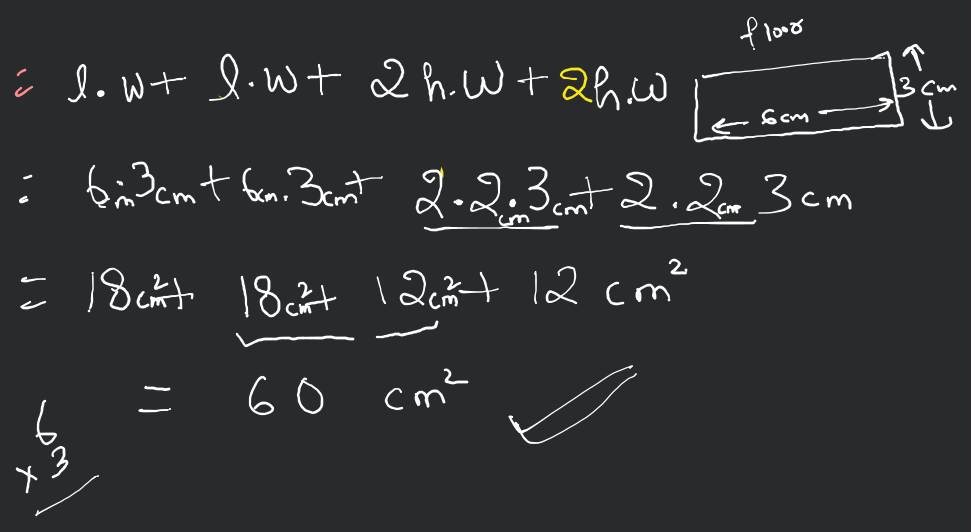 floor
= l.w + l.w + 2h.w + 2h.w
3cm
6cm
= 6cm.3cm + 6cm.3cm + 2.2cm.3cm + 2.2cm 3cm
= 18cm² + 18cm² + 12cm² + 12 cm²
= 60 cm²
6
x 3